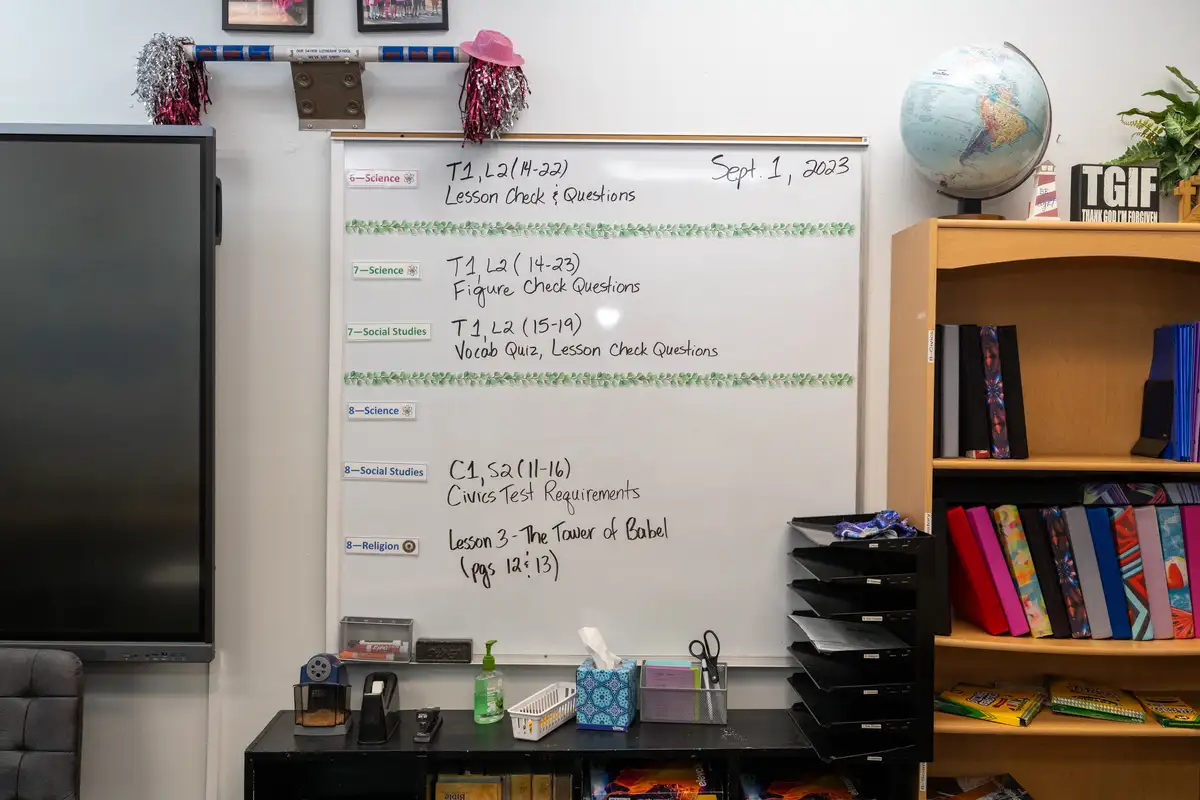 OUR SAVIOR LUTHERAN SCHOOL
Sept. 1, 2023
6—Science
T1, L2 (14-22)
Lesson Check & Questions
7—Science
T1, L2 (14-23)
Figure Check Questions
7—Social Studies
T1, L2 (15-19)
Vocab Quiz, Lesson Check Questions
8—Science
8—Social Studies
C1, S2 (11-16)
Civics Test Requirements
8—Religion
Lesson 3 - The Tower of Babel
(pgs 12 & 13)
TGIF
THANK GOD I'M FORGIVEN
Bible